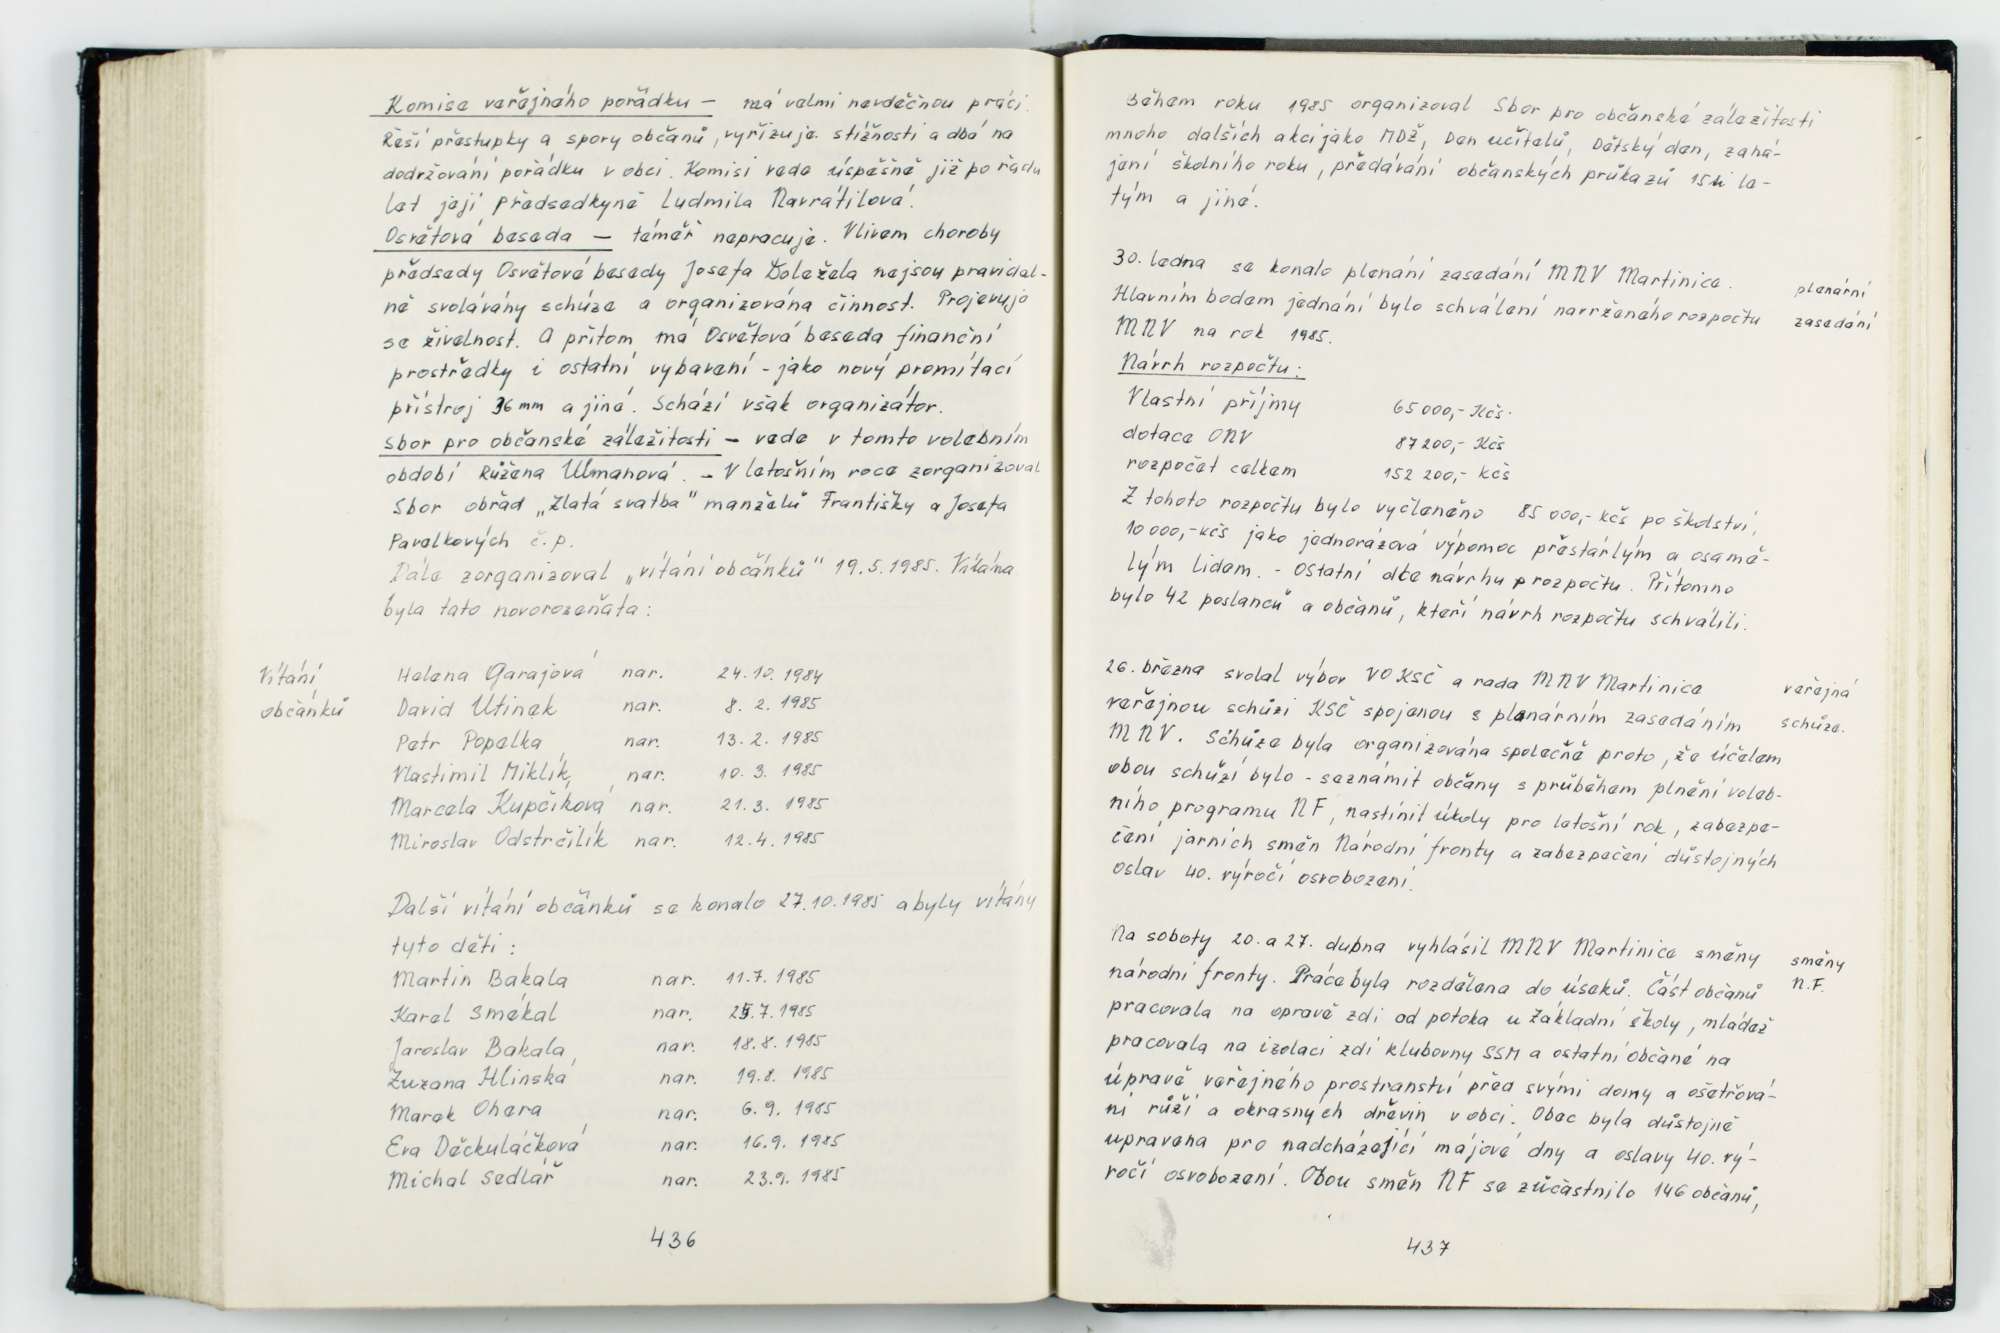 Komise veřejného pořádku – má velmi nevděčnou práci.
Řeší přestupky a spory občanů, vyřizuje stížnosti a dbá na
dodržování pořádku v obci. Komisi vede úspěšně již po řadu
let její předsedkyně Ludmila Navrátilová.
Osvětová beseda – téměř nepracuje. Vlivem choroby
předsedy Osvětové besedy Josefa Doležela nejsou pravidel-
ně svolávány schúze a organizována činnost. Projevuje
se živelnost. A přitom má Osvětová beseda finanční
prostředky i ostatní vybavení - jako nový promítací
přístroj 36 mm a jiné. Schází však organizátor.
Sbor pro občanské záležitosti – vede v tomto volebním
období Růžena Ulmanová. – V letošním roce zorganizoval
Sbor obřad „Zlatá svatba" manželů Františky a Josefa
Pavelkových č.p.
Dále zorganizoval „vítání občánků" 19.5.1985. Vítána
byla tato novorozeňata:
Vítání
občánků
Helena Garajová nar. 24.10.1984
David Utinek nar. 8. 2. 1985
Petr Popelka nar. 13. 2. 1985
Vlastimil Miklík nar. 10. 3. 1985
Marcela Kupčíková nar. 21. 3. 1985
Miroslav Odstrčilík nar. 12. 4. 1985
Další vítání občánků se konalo 27.10.1985 a byly vítány
tyto děti:
Martin Bakala nar. 11.7. 1985
Karel Smékal nar. 25.7. 1985
Jaroslav Bakala nar. 18.8. 1985
Zuzana Hlinská nar. 19.8. 1985
Marek Ohera nar. 6. 9. 1985
Eva Děckuláčková nar. 16.9. 1985
Michal Sedlář nar. 23.9. 1985
436
Během roku 1985 organizoval Sbor pro občanské záležitosti
mnoho dalších akcí jako MDŽ, Den učitelů, Dětský den, zahá-
jení školního roku, předávání občanských průkazů 15ti le-
tým a jiné.
30. ledna se konalo plenání zasedání MNV Martinice.
Hlavním bodem jednání bylo schválení navrženého rozpočtu
MNV na rok 1985.
plenární
zasedání
Návrh rozpočtu:
Vlastní příjmy 65 000,- Kčs.
dotace ONV 87 200,- Kčs
rozpočet celkem 152 200,- kčs
Z tohoto rozpočtu bylo vyčleněno 85 000,- kčs po školství,
10 000,- kčs jako jednorázová výpomoc přestárlým a osamě-
lým lidem. - Ostatní dle návrhu rozpočtu. Přítomno
bylo 42 poslanců a občanů, kteří návrh rozpočtu schválili.
26. března svolal výbor VO KSČ a rada MNV Martinice
veřejnou schůzi KSČ spojenou s plenárním zasedáním
MNV. Schůze byla organizována společně proto, že účelem
obou schůzí bylo - seznámit občany s průběhem plnění voleb-
ního programu NF, nastínit úkoly pro letošní rok, zabezpe-
čení jarních směn Národní fronty a zabezpečení důstojných
oslav 40. výročí osvobození.
veřejná
schůze.
Na soboty 20. a 27. dubna vyhlásil MNV Martinice směny
národní fronty. Práce byla rozdělena do úseků. Část občanů
pracovala na opravě zdi od potoka u Základní školy, mládež
pracovala na izolaci zdí klubovny SSM a ostatní občané na
úpravě veřejného prostranství před svými domy a ošetřová-
ní růží a okrasných dřevin v obci. Obec byla důstojně
upravena pro nadcházející májové dny a oslavy 40. vý-
ročí osvobození. Obou směn NF se zúčastnilo 146 občanů,
směny
N.F.
437